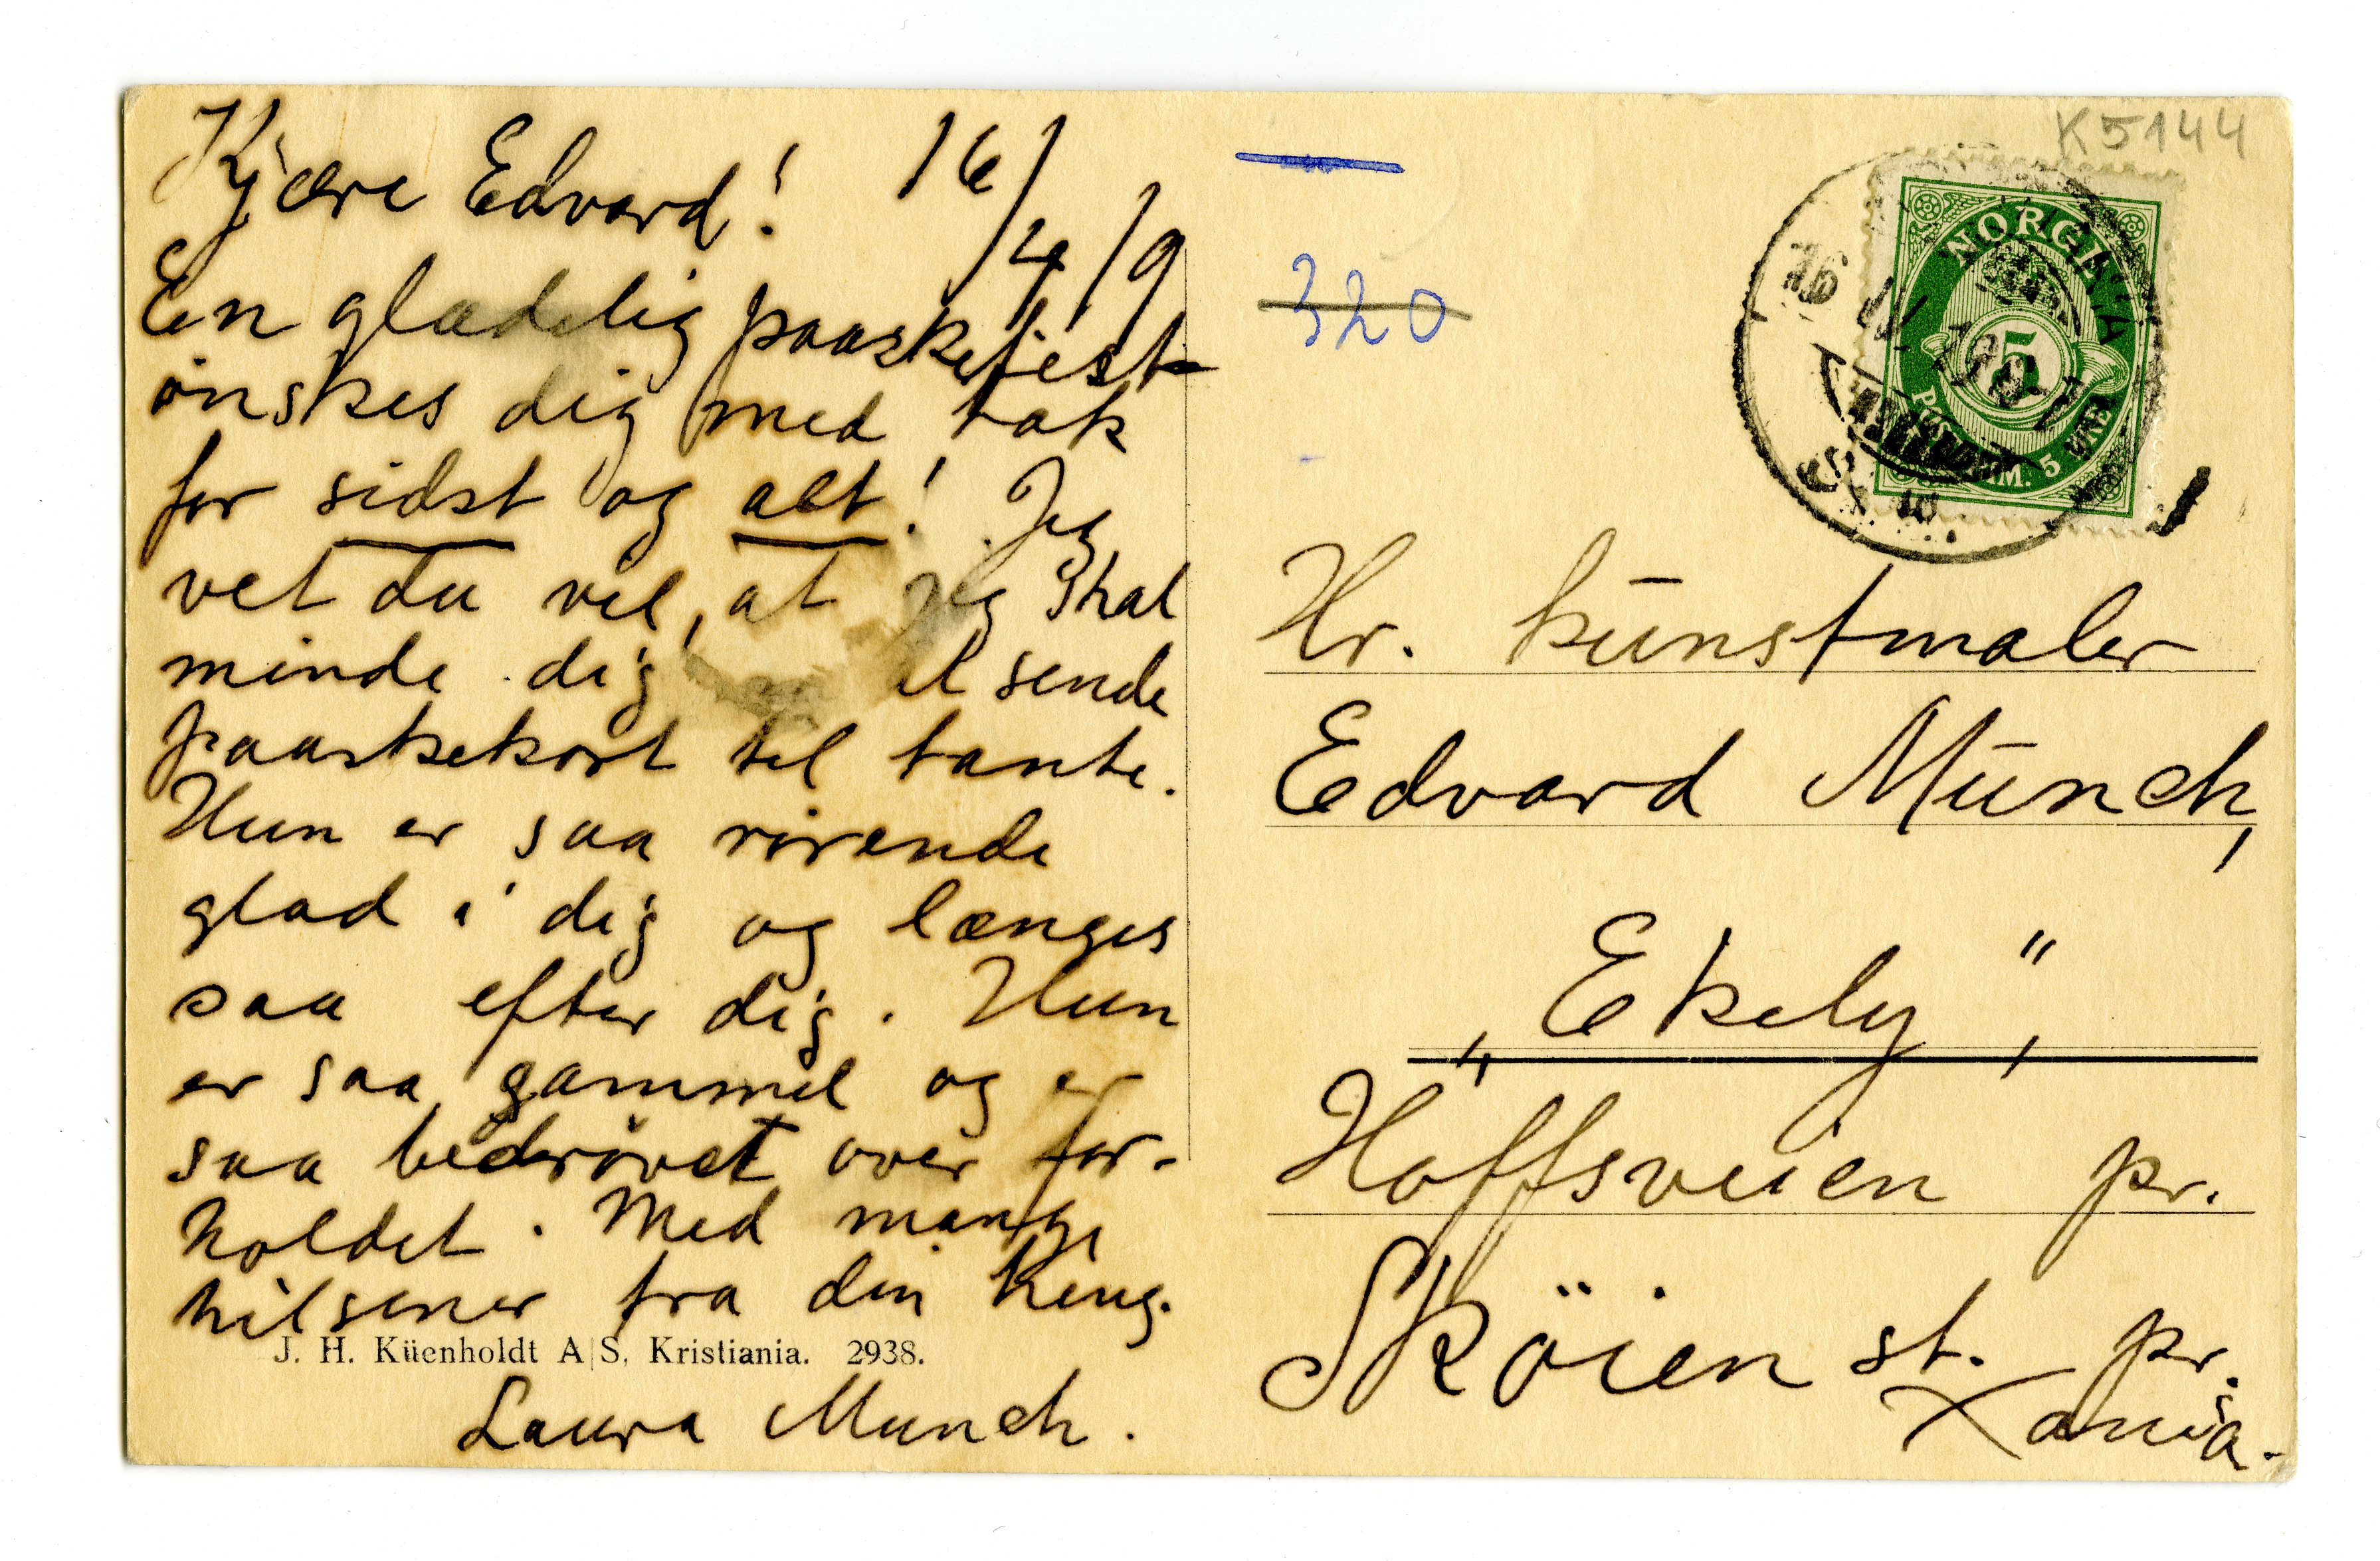 Kjære Edvard! 16/4/19
En glædelig paaskefest
ønskes dig med tak
for sidst og alt! Jeg
vet du vel, at jeg skal
minde dig sende
paaskekort til tante.
Hun er saa rørende
glad i dig og længes
saa efter dig. Hun
er saa gammel og er
saa bedrøvet over for-
holdet. Med mange
hilsener fra din heng.
J. H. Küenholdt A/S, Kristiania. 2938.
Laura Munch.
320
K5144
NORGE
5
POSTFRIM. 5 ØRE
Hr. kūnstmaler
Edvard Mūnch,
„Ekely",
Hoffsveien pr.
Sköien st. pr.
Xania.